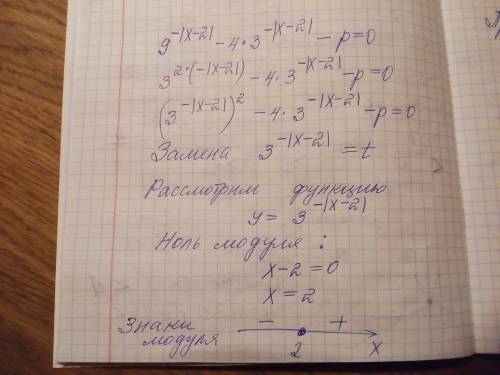 9^{-|x-2|} - 4·3^{-|x-2|} - p = 0
3^{2·(-|x-2|)} - 4·3^{-|x-2|} - p = 0
(3^{-|x-2|})^2 - 4·3^{-|x-2|} - p = 0
Замена 3^{-|x-2|} = t
Рассмотрим функцию
y = 3^{-|x-2|}
Ноль модуля :
x-2 = 0
x = 2
Знаки модуля - +
2 x